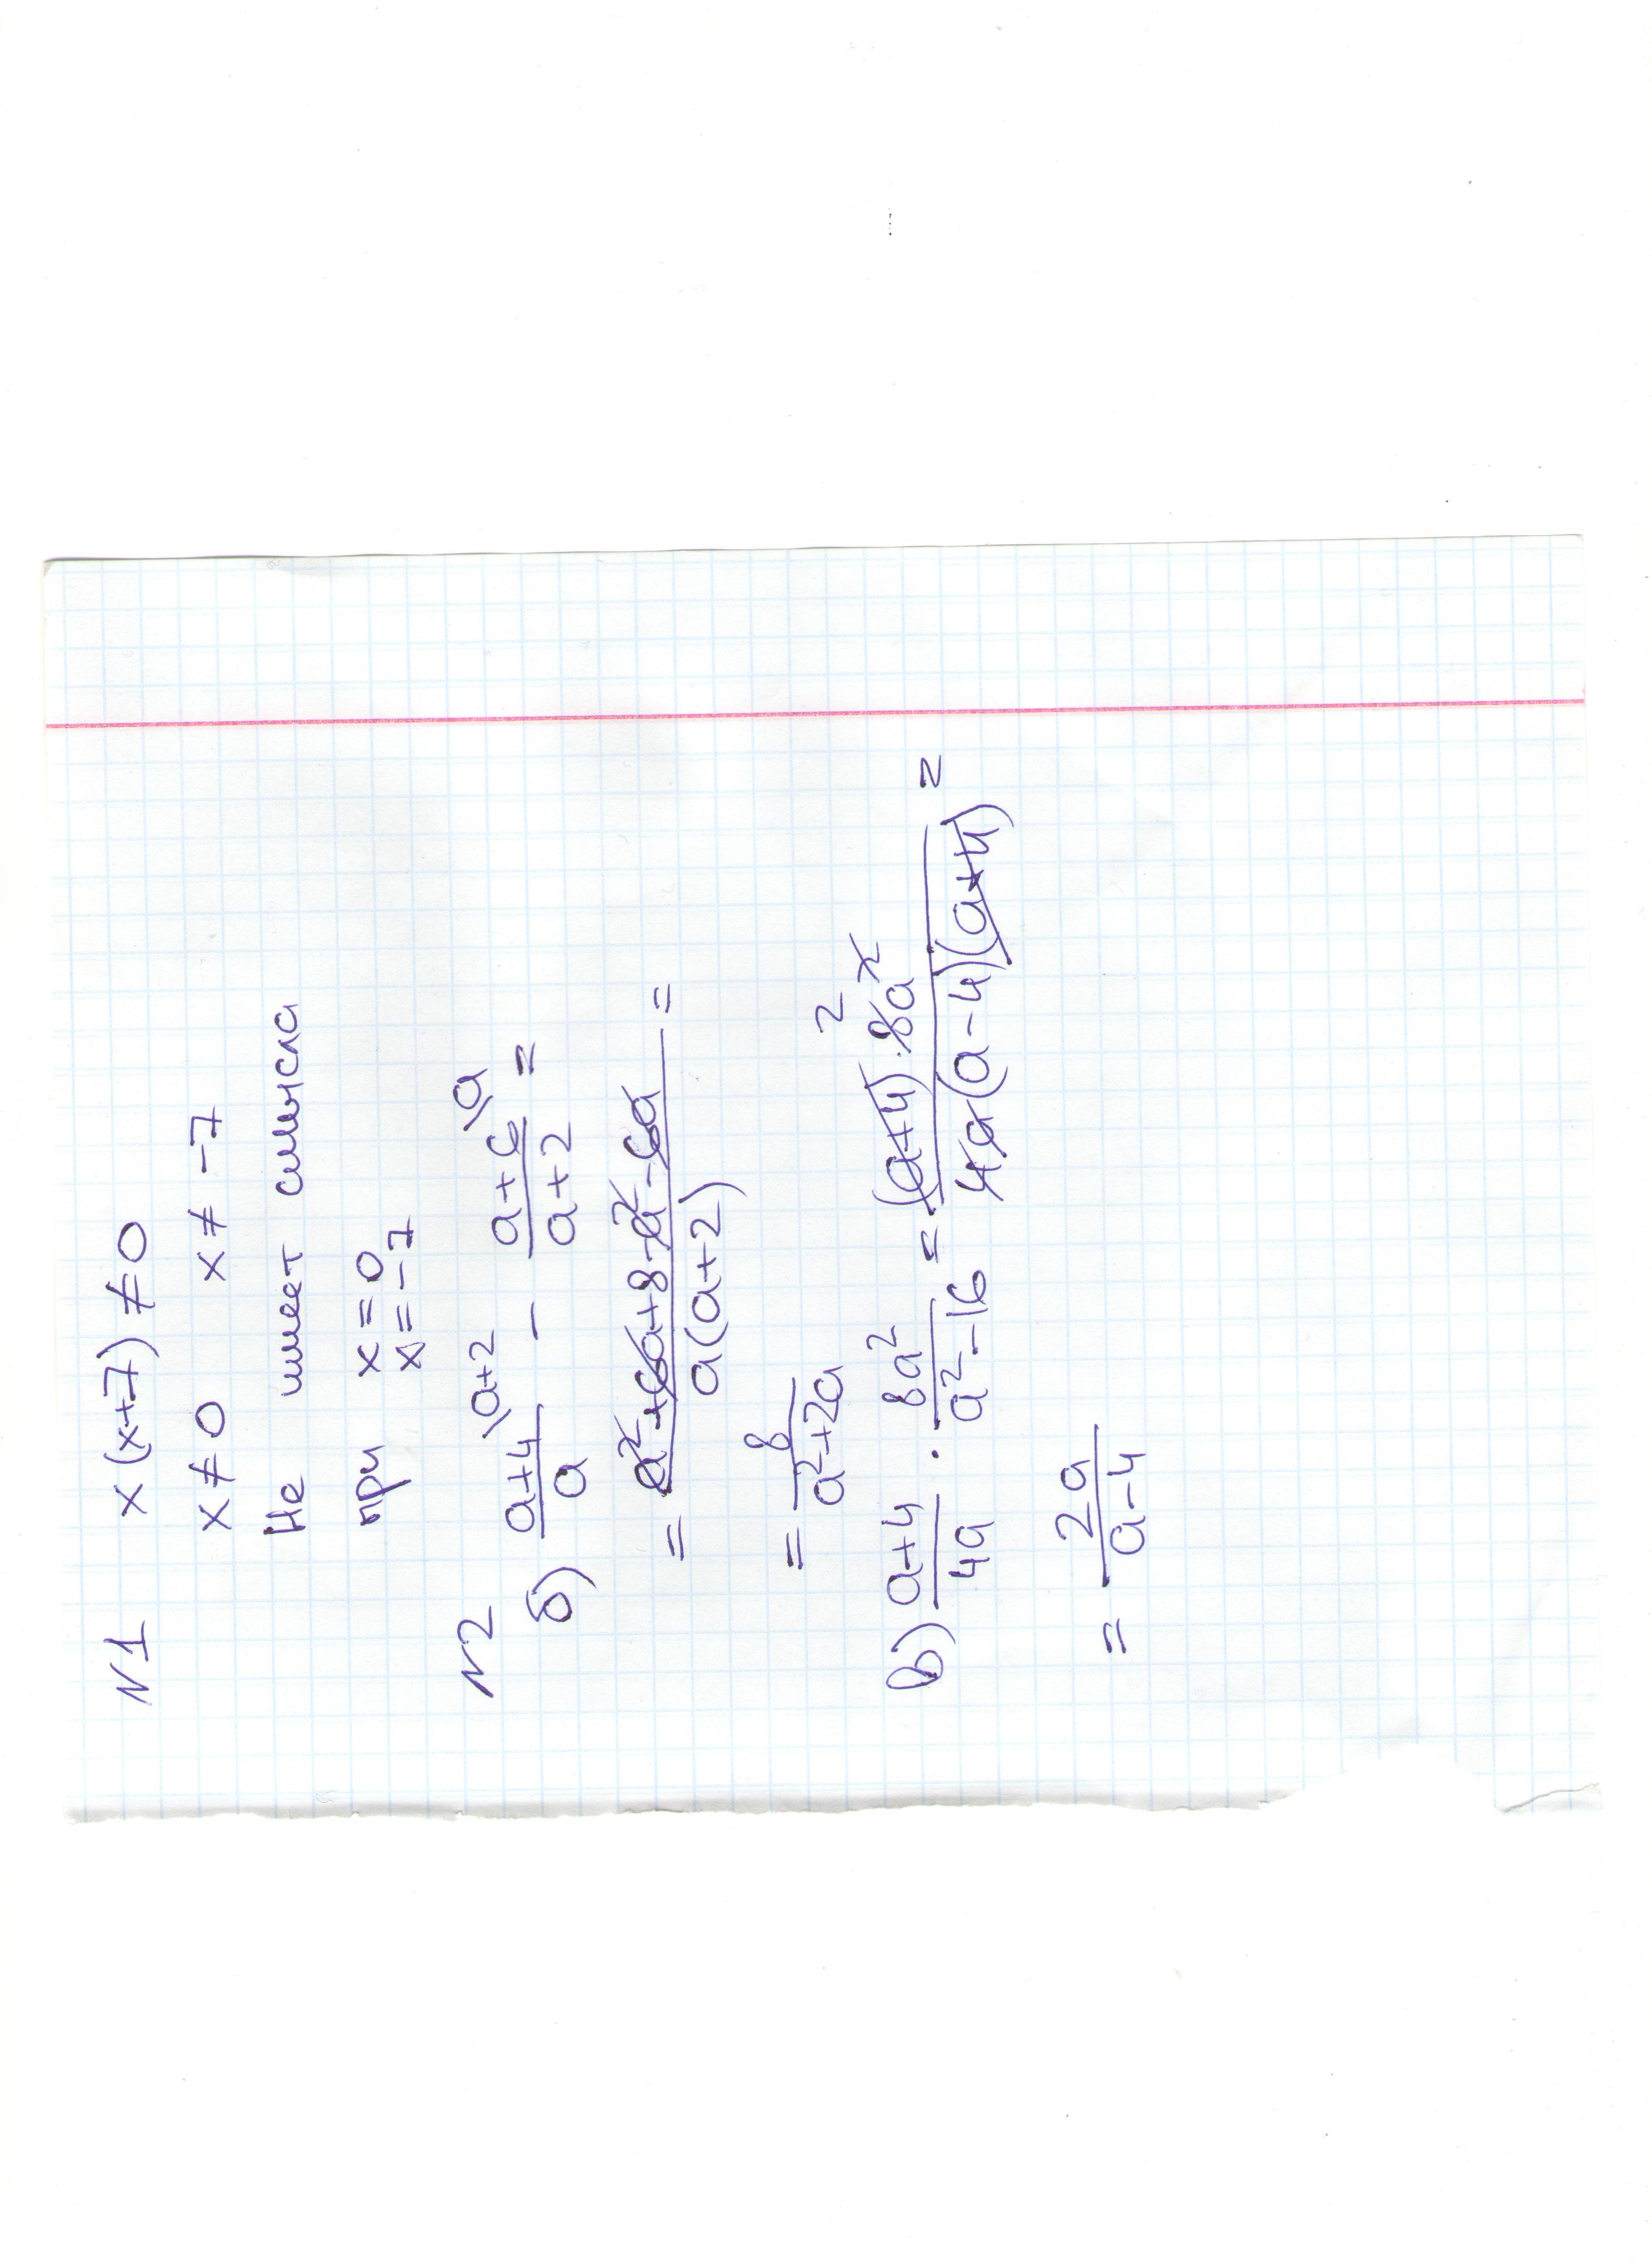 N1 x(x+7)≠0
x≠0 x≠-7
Не имеет смысла
при x=0
x=-7
N2
б) (a+4)/a \a+2 - (a+6)/(a+2) \a =
= (a²+6a+8-a²-6a)/(a(a+2)) =
= 8/(a²+2a)
в) (a+4)/(4a) · 8a²/(a²-16) = ((a+4)·8a² 2)/(4a(a-4)(a+4)) =
= 2a/(a-4)